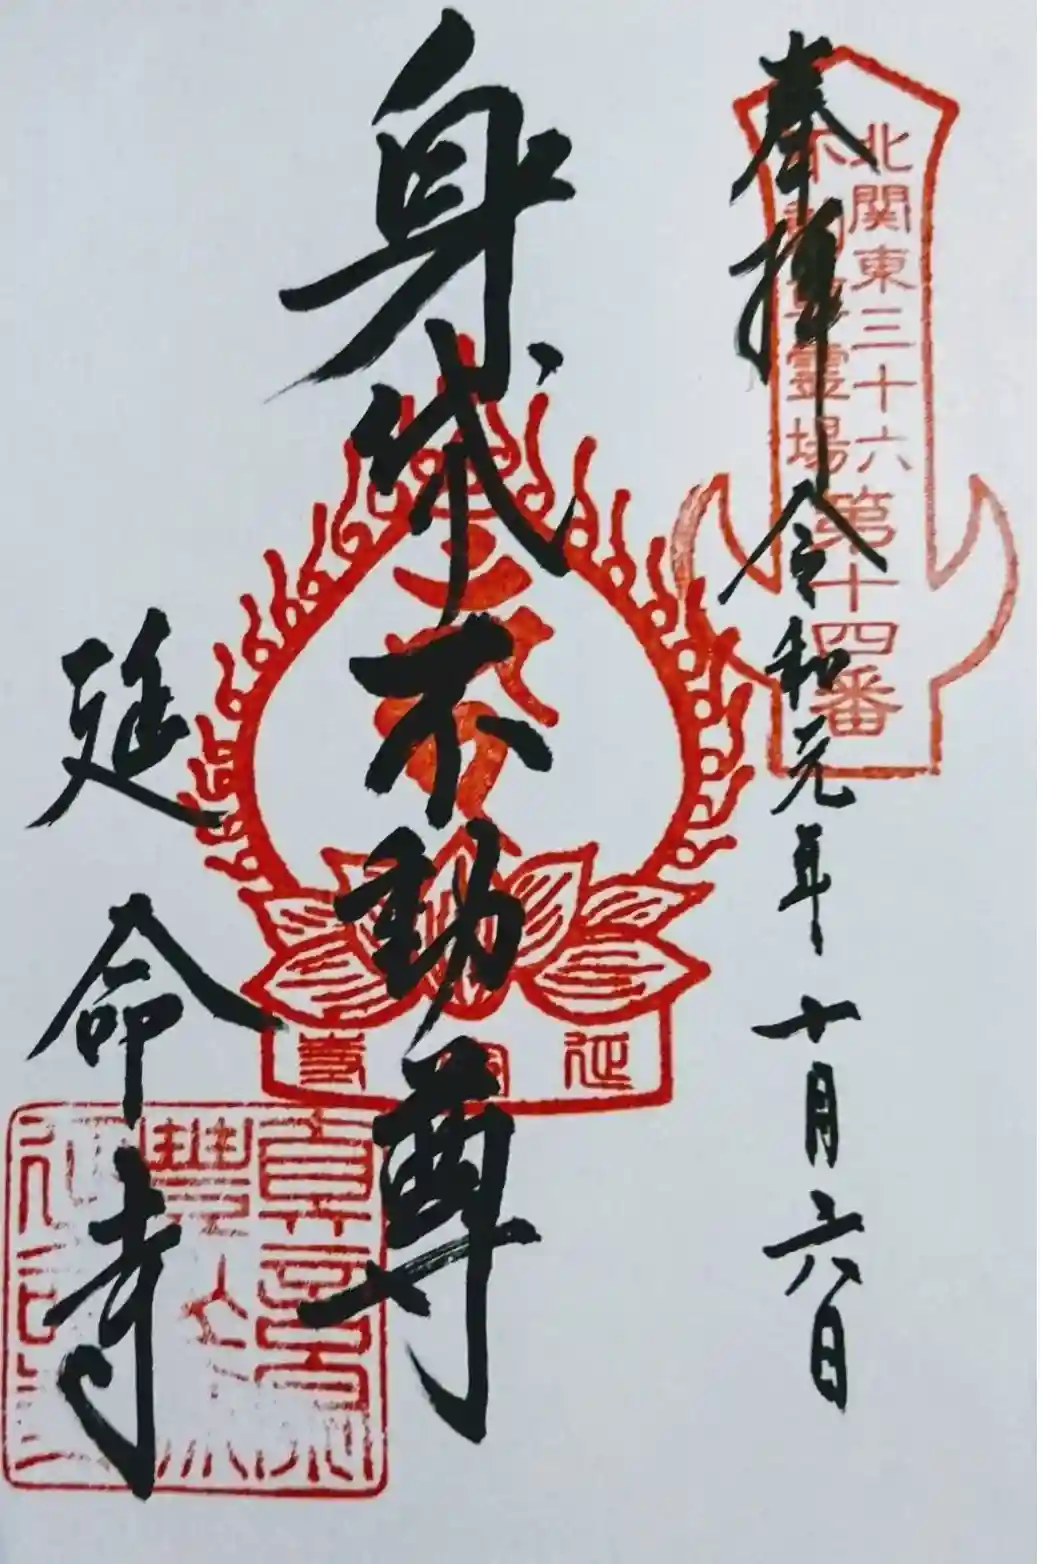 奉拝
令和元年十月六日
北関東三十六
不動尊霊場
第十四番
身代不動尊
延命寺